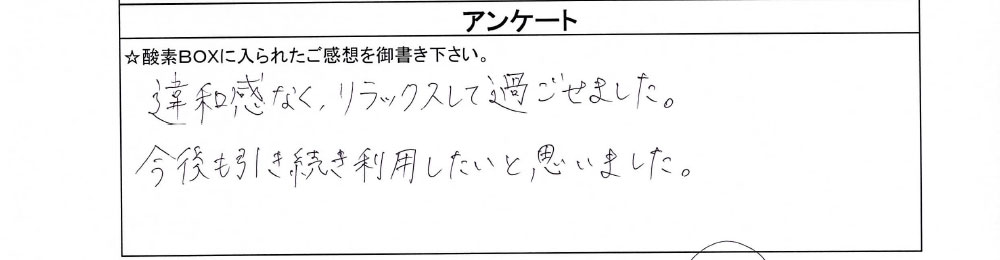 アンケート
☆酸素BOXに入られたご感想を御書き下さい。
違和感なく、リラックスして過ごせました。
今後も引き続き利用したいと思いました。